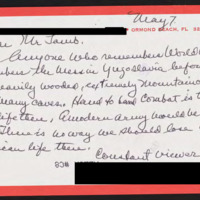 May 7.
ORMOND BEACH, FL
Mr Tomb.
Anyone who remembers World
the Mess in Yugoslavia before
heavily wooded, extremely mountain
many caves. Hand to hand Combat is t
life then, A modern Army would be
There is no way we should lose
life then.
Constant viewer